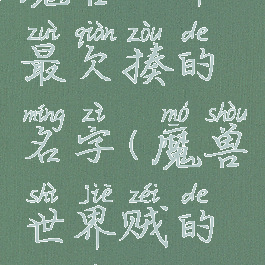 zuì qiàn zòu de
最欠揍的
míng zì mó shòu
名字(魔兽
shì jiè zéi de
世界贼的